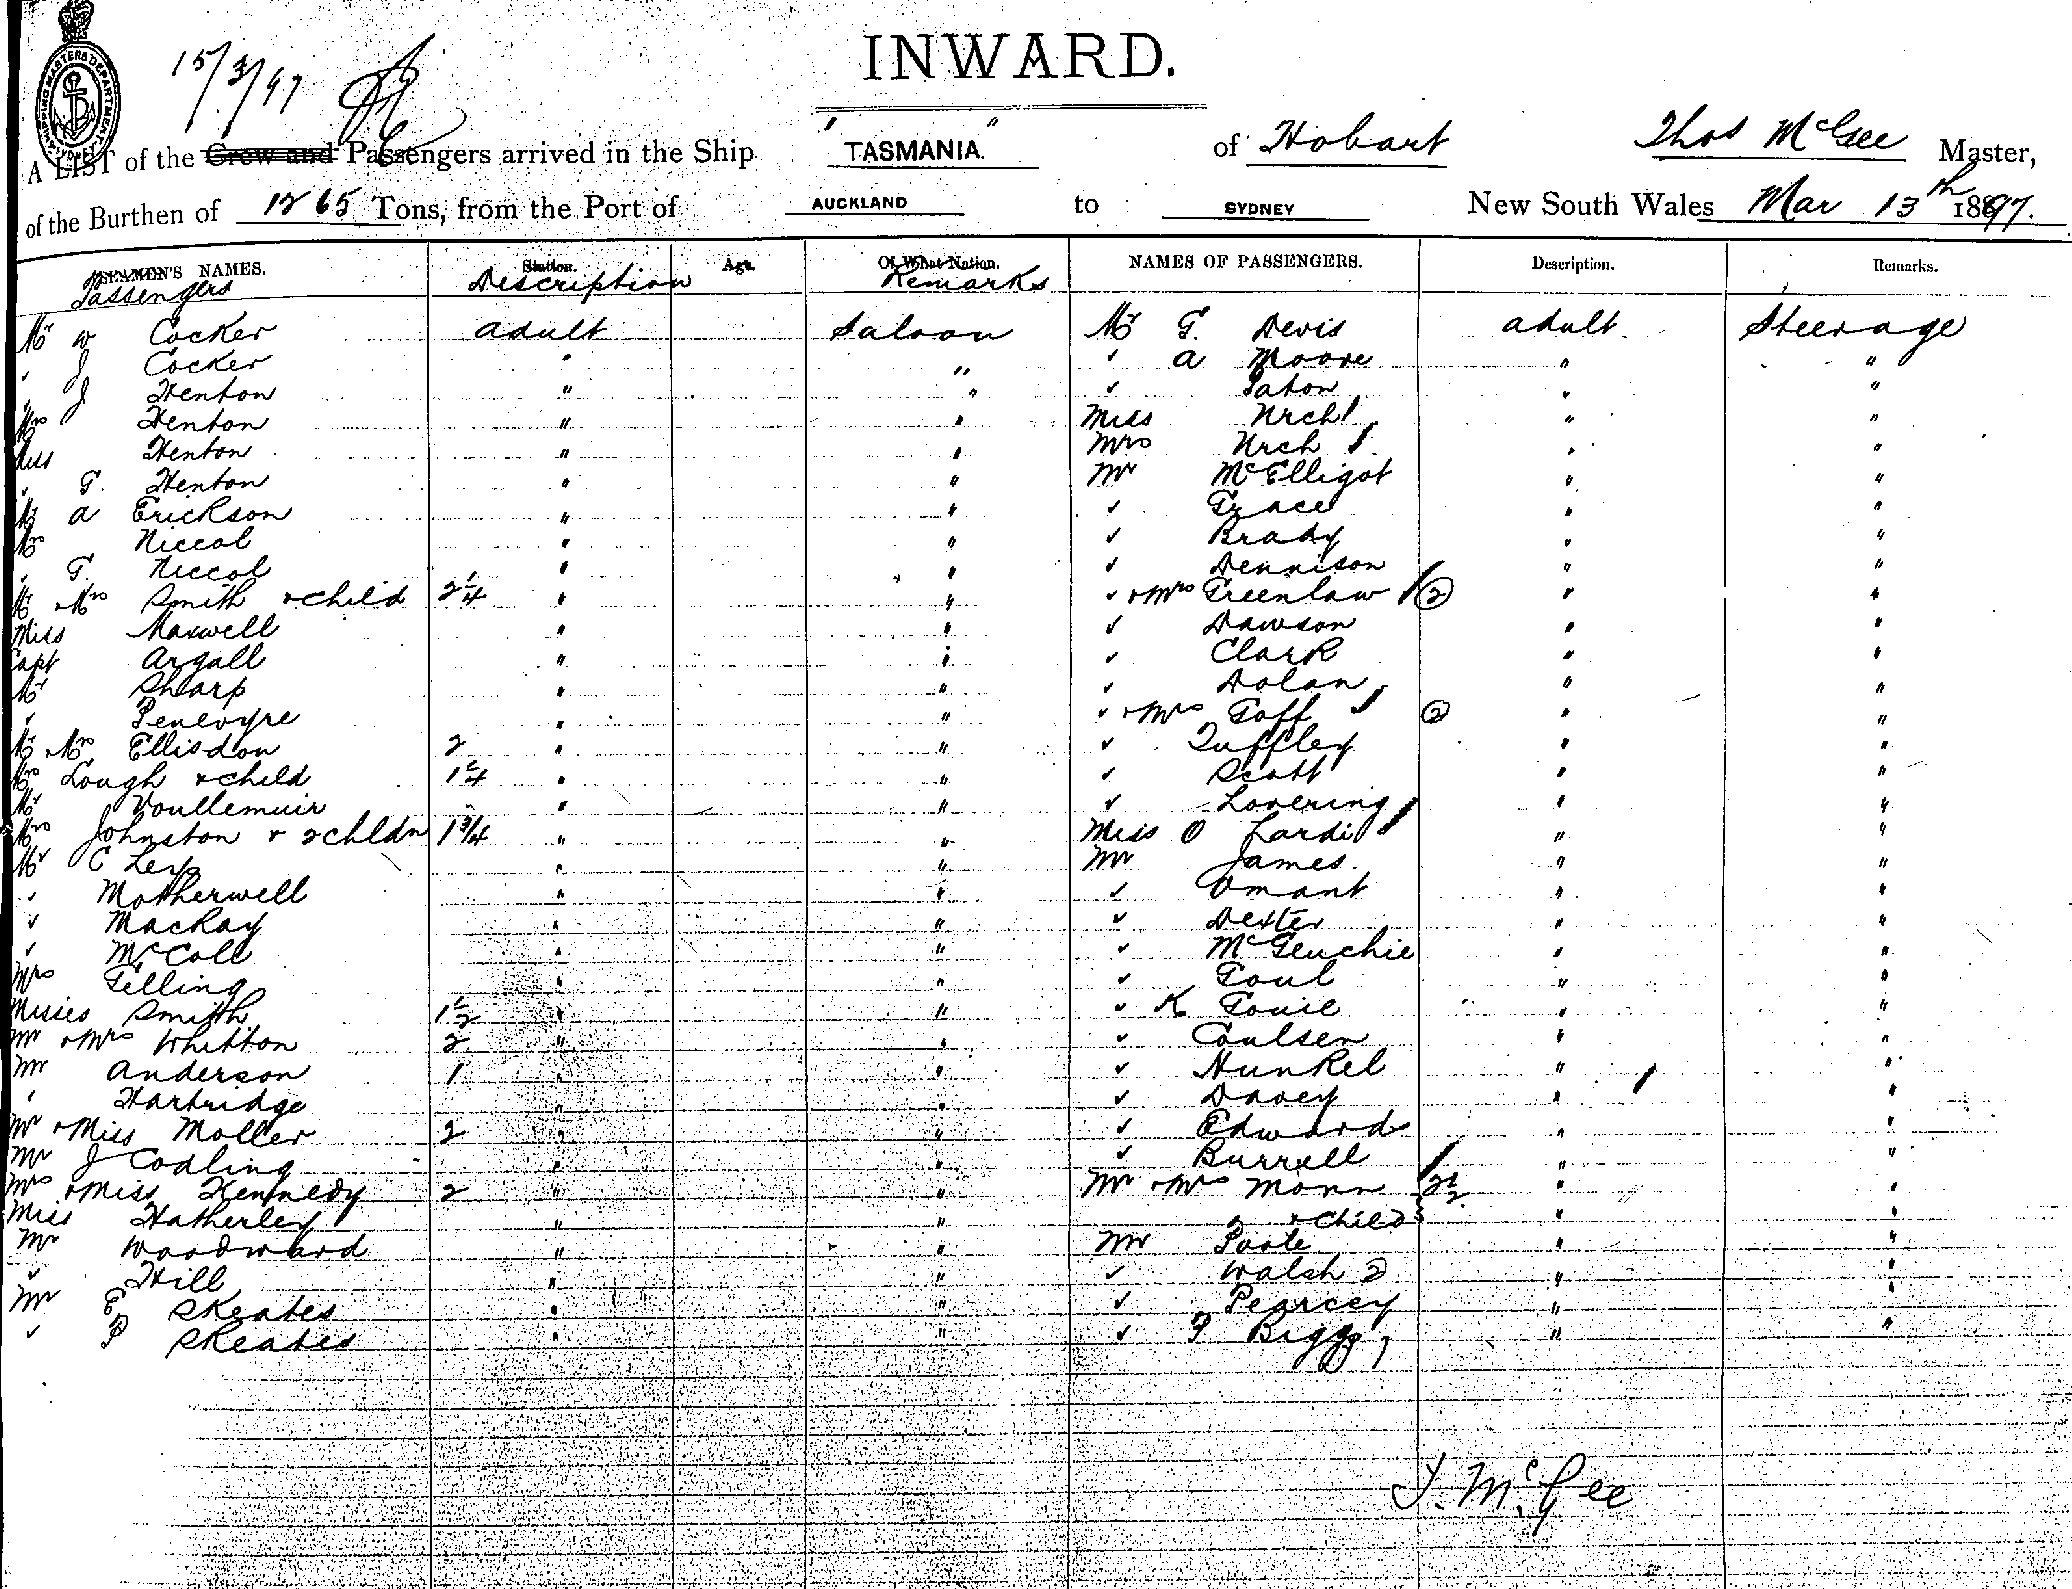 SHIPPING MASTERS DEPARTMENT
15/3/97
INWARD.
A LIST of the Crew and Passengers arrived in the Ship "TASMANIA." of Hobart Thos McGee Master,
of the Burthen of 1265 Tons, from the Port of AUCKLAND to SYDNEY New South Wales Mar 13th 1897.
SEAMEN'S NAMES. Station. Age. Of What Nation. NAMES OF PASSENGERS. Description. Remarks.
Passengers Description Remarks
Mr W Cocker adult Saloon Mr G. Devis adult Steerage
✓ J Cocker " " ✓ A Moore " "
J Henton " " ✓ Paton " "
Mrs Henton " " Miss Urch " "
Miss Henton " " Mrs Urch " "
✓ G. Henton " " Mr McElligot " "
Mr A Erickson " " ✓ Grace " "
Mrs Niccol " " ✓ Brady " "
✓ G. Niccol " " ✓ Dennison " "
Mr & Mrs Smith & child 2 1/4 " " ✓ & Mrs Greenlaw 2 " "
Miss Maxwell " " ✓ Dawson " "
Capt Argall " " ✓ Clark " "
Mr Sharp " " ✓ Dolan " "
✓ Penevyre " " ✓ & Mrs Goff 2 " "
Mr & Mrs Ellisdon 2 " " ✓ Tuffley " "
Mrs Lough & child 1 1/4 " " ✓ Scott " "
Mr Voullemuir " " ✓ Lovering " "
Mrs Johnston & 2 chldn 1 3/4 " " Miss O Lardi " "
Mr C Ley " " Mr James " "
✓ Motherwell " " ✓ Omant " "
✓ Mackay " " ✓ Dexter " "
✓ McColl " " ✓ McGeuchie " "
Mrs Gelling " " ✓ Goul " "
Misses Smith 1 1/2 " " ✓ K Gouie " "
Mr & Mrs Whitton 2 " " ✓ Coulsen " "
Mr Anderson 1 " " ✓ Hunkel " "
✓ Hartridge " " ✓ Davey " "
Mr & Miss Moller 2 " " ✓ Edwards " "
Mr J Codling " " ✓ Burrell " "
Mrs & Miss Kennedy 2 " " Mr & Mrs Monn 2 1/2 " "
Miss Hatherley " " & child " "
Mr Woodward " " Mr Poole " "
✓ Hill " " ✓ Walsh 2 " "
Mr E Skeates " " ✓ Pearcey " "
✓ P Skeates " " ✓ F Bigg " "
T. McGee